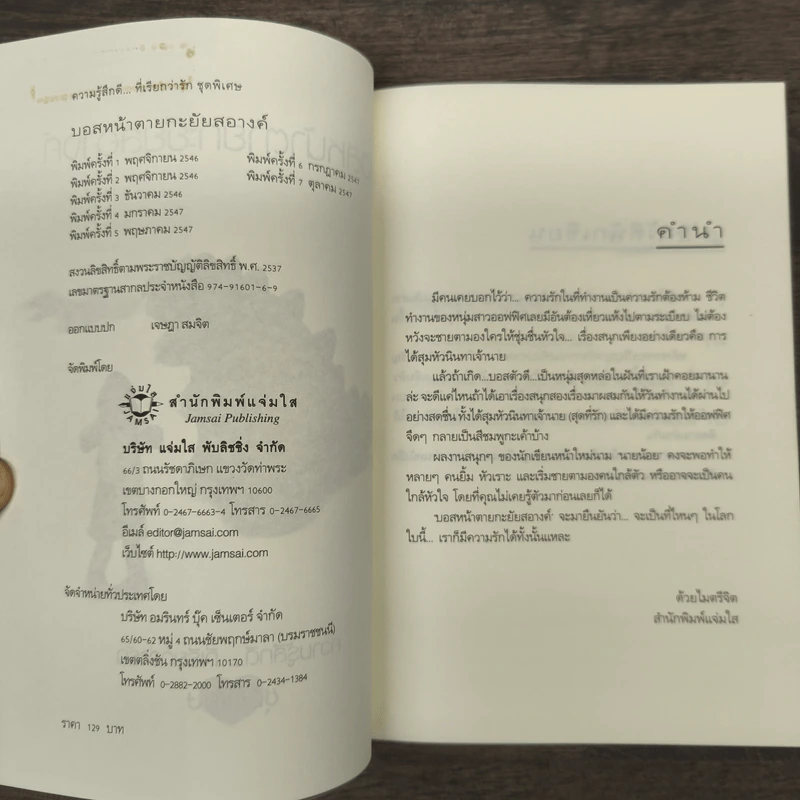 ความรู้สึกดี... ที่เรียกว่ารัก ชุดพิเศษ
บอสหน้าตายกะยัยสอางค์
พิมพ์ครั้งที่ 1 พฤศจิกายน 2546
พิมพ์ครั้งที่ 2 พฤศจิกายน 2546
พิมพ์ครั้งที่ 3 ธันวาคม 2546
พิมพ์ครั้งที่ 4 มกราคม 2547
พิมพ์ครั้งที่ 5 พฤษภาคม 2547
พิมพ์ครั้งที่ 6 กรกฎาคม 2547
พิมพ์ครั้งที่ 7 ตุลาคม 2547
สงวนลิขสิทธิ์ตามพระราชบัญญัติลิขสิทธิ์ พ.ศ. 2537
เลขมาตรฐานสากลประจำหนังสือ 974-91601-6-9
ออกแบบปก เจษฎา สมจิต
จัดพิมพ์โดย
แจ่มใส
JAMSAI
สำนักพิมพ์แจ่มใส
Jamsai Publishing
บริษัท แจ่มใส พับลิชชิ่ง จำกัด
66/3 ถนนรัชดาภิเษก แขวงวัดท่าพระ
เขตบางกอกใหญ่ กรุงเทพฯ 10600
โทรศัพท์ 0-2467-6663-4 โทรสาร 0-2467-6665
อีเมล์ editor@jamsai.com
เว็บไซต์ http://www.jamsai.com
จัดจำหน่ายทั่วประเทศโดย
บริษัท อมรินทร์ บุ๊ค เซ็นเตอร์ จำกัด
65/60-62 หมู่ 4 ถนนชัยพฤกษ์มาลา (บรมราชชนนี)
เขตตลิ่งชัน กรุงเทพฯ 10170
โทรศัพท์ 0-2882-2000 โทรสาร 0-2434-1384
ราคา 129 บาท
คำนำ
มีคนเคยบอกไว้ว่า... ความรักในที่ทำงานเป็นความรักต้องห้าม ชีวิต
ทำงานของหนุ่มสาวออฟฟิศเลยมีอันต้องเหี่ยวแห้งไปตามระเบียบ ไม่ต้อง
หวังจะชายตามองใครให้ชุ่มชื่นหัวใจ... เรื่องสนุกเพียงอย่างเดียวคือ การ
ได้สุมหัวนินทาเจ้านาย
แล้วถ้าเกิด...บอสตัวดี...เป็นหนุ่มสุดหล่อในฝันที่เราเฝ้าคอยมานาน
ล่ะ จะดีแค่ไหนถ้าได้เอาเรื่องสนุกสองเรื่องมาผสมกันให้วันทำงานได้ผ่านไป
อย่างสดชื่น ทั้งได้สุมหัวนินทาเจ้านาย (สุดที่รัก) และได้มีความรักให้ออฟฟิศ
จืดๆ กลายเป็นสีชมพูกะเค้าบ้าง
ผลงานสนุกๆ ของนักเขียนหน้าใหม่นาม ‘นายน้อย’ คงจะพอทำให้
หลายๆ คนยิ้ม หัวเราะ และเริ่มชายตามองคนใกล้ตัว หรืออาจจะเป็นคน
ใกล้หัวใจ โดยที่คุณไม่เคยรู้ตัวมาก่อนเลยก็ได้
‘บอสหน้าตายกะยัยสอางค์’ จะมายืนยันว่า... จะเป็นที่ไหนๆ ในโลก
ใบนี้... เราก็มีความรักได้ทั้งนั้นแหละ
ด้วยไมตรีจิต
สำนักพิมพ์แจ่มใส